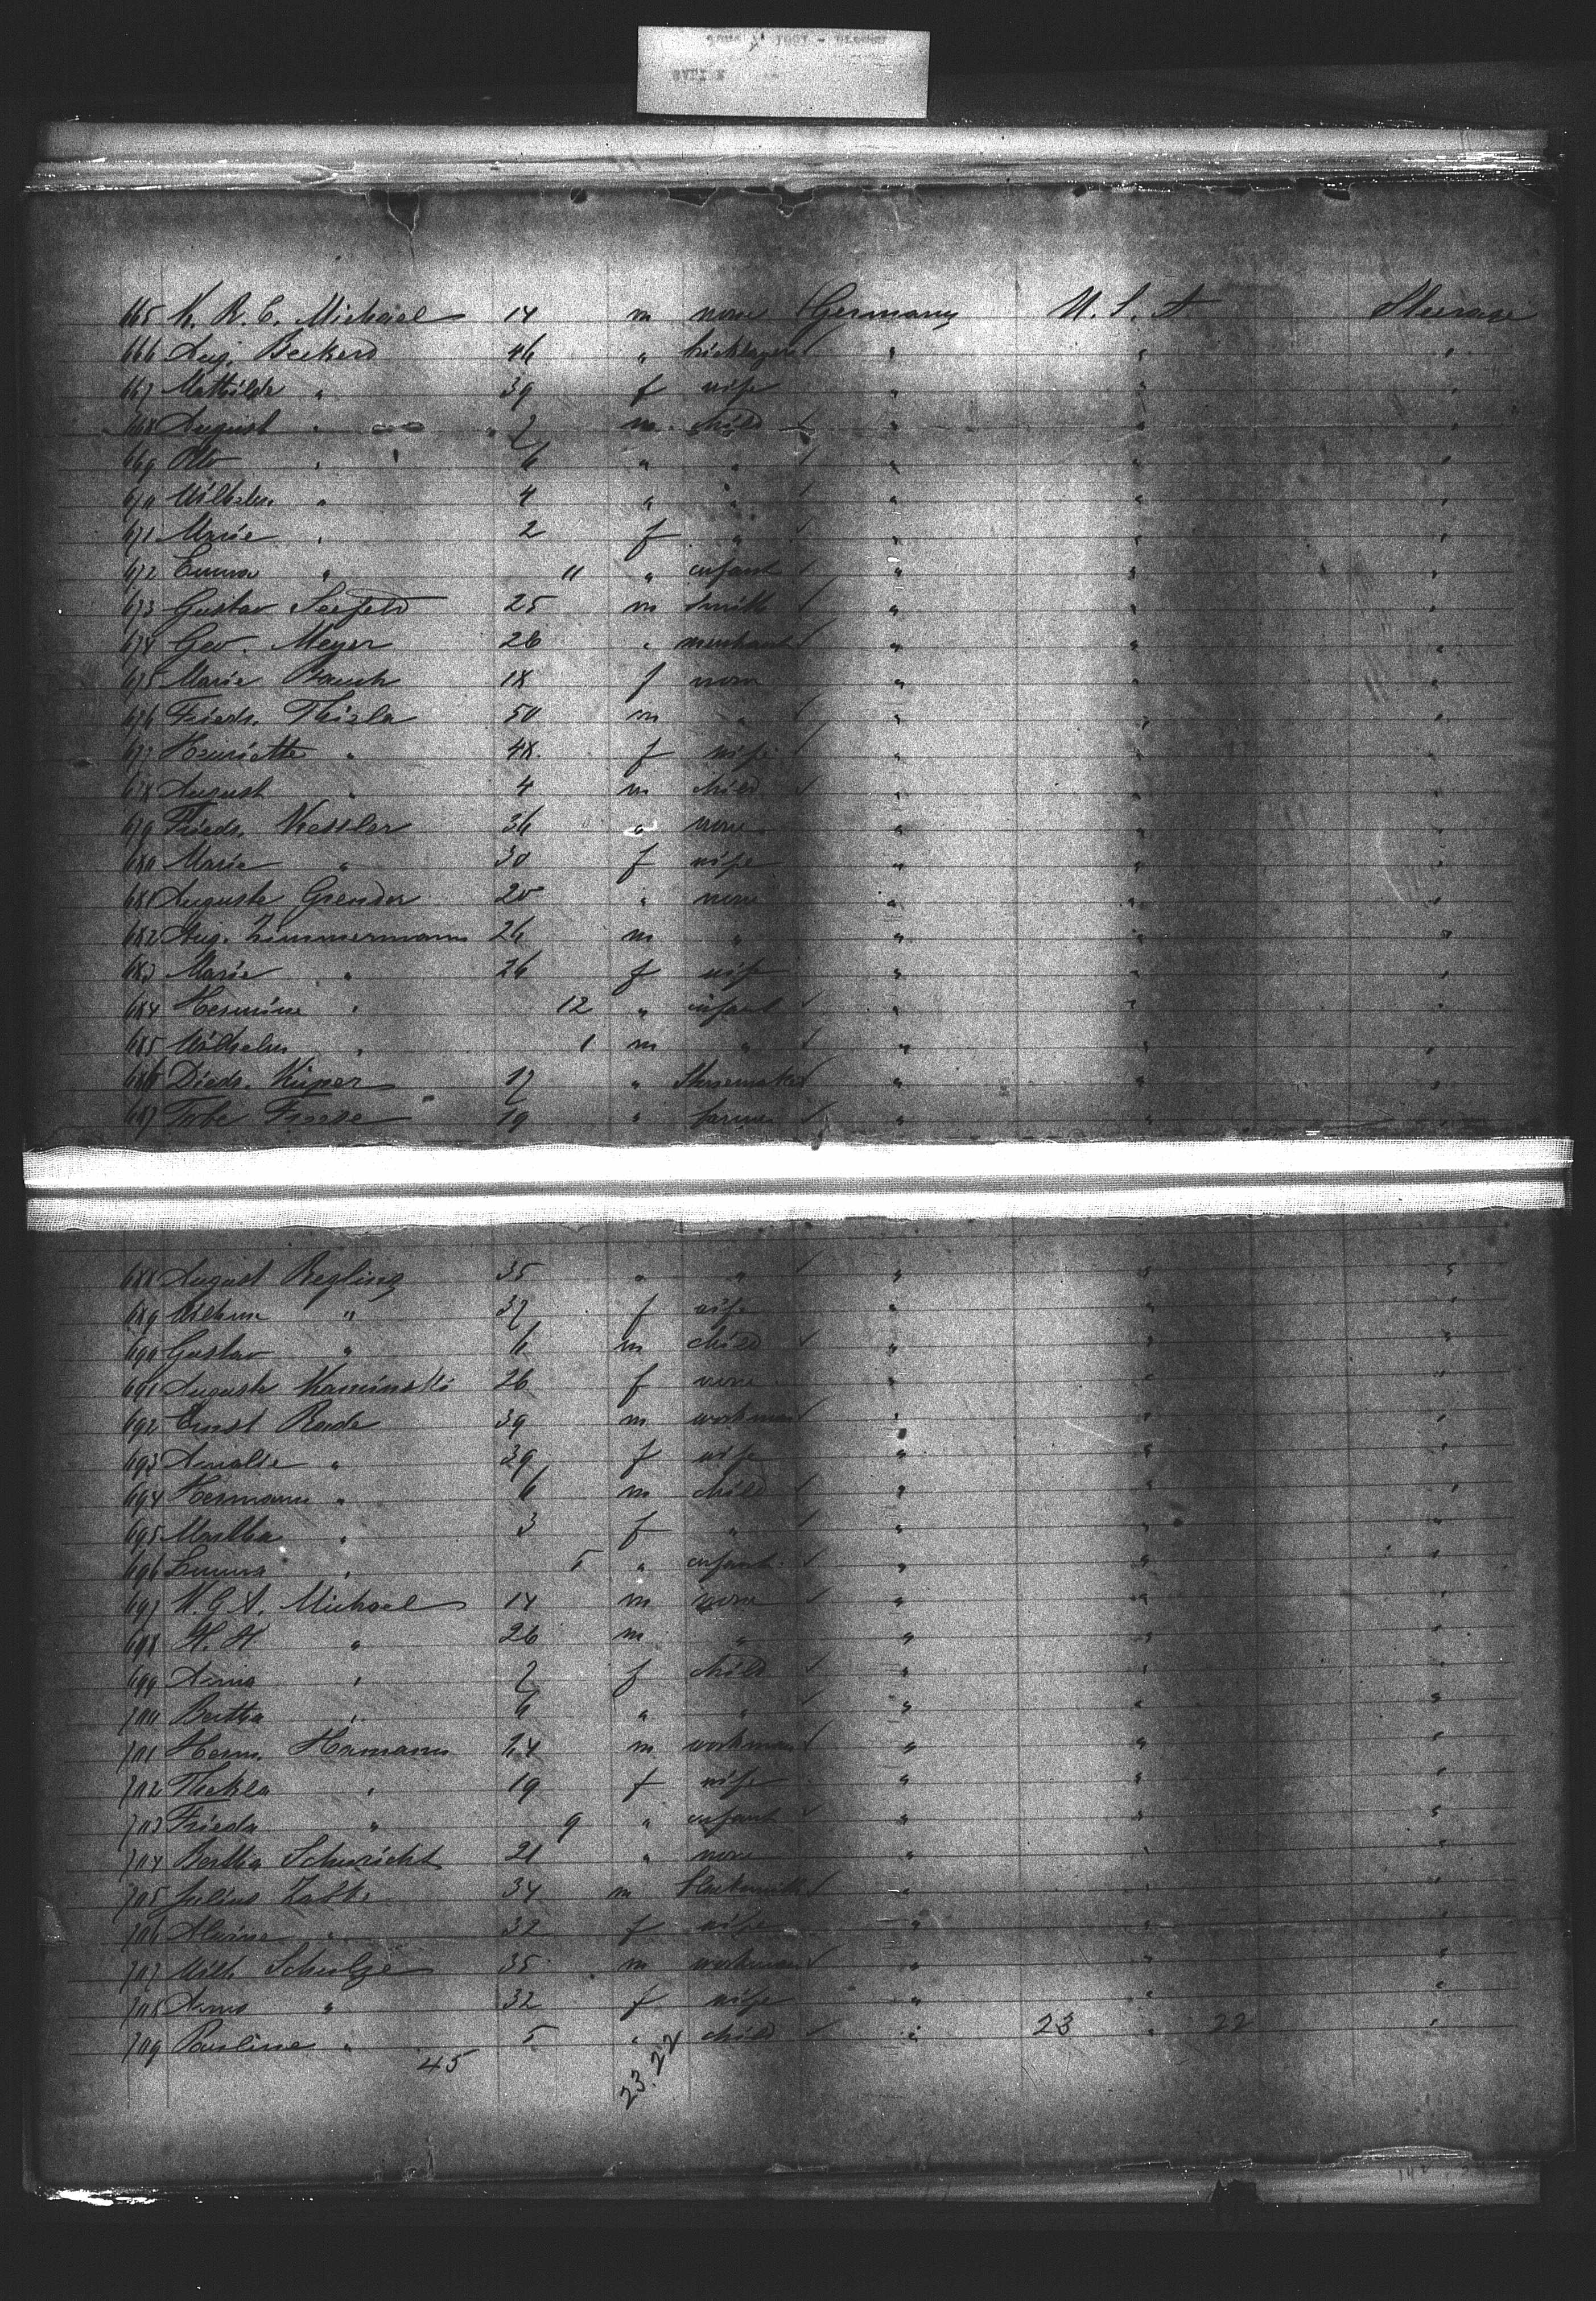 665 K. R. E. Michael 14 m none Germany U. S. A Steerage
666 Aug. Beckerd 46 " bricklayer " " "
667 Mathilde " 39 f wife " " "
668 August " 7 m child " " "
669 Otto " 6 " " " " "
670 Wilhelm " 4 " " " " "
671 Marie " 2 f " " " "
672 Emma " 11 " infant " " "
673 Gustav Seefeld 25 m Smith " " "
674 Geo. Meyer 26 " merchant " " "
675 Marie 18 f none " " "
676 Friedr. 50 m " " " "
677 Henriette " 48 f wife " " "
678 August " 4 m child " " "
679 Friedr. Kessler 36 " none " " "
680 Marie " 30 f wife " " "
681 Auguste Grendor 20 " none " " "
682 Aug. Zimmermann 26 m " " " "
683 Marie " 26 f wife " " "
684 Hermine " 12 " infant " " "
685 Wilhelm " 1 m " " " "
686 Diedr. Küper 17 " Shoemaker " " "
687 19 " farmer " " "
688 August Regling 35 " " " " "
689 " 37 f wife " " "
690 Gustav " 6 m child " " "
691 Auguste Kaminski 26 f none " " "
692 Ernst Rade 39 m workman " " "
693 Amalie " 39 f wife " " "
694 Hermann " 6 m child " " "
695 Martha " 3 f " " " "
696 Emma " 5 " infant " " "
697 K. G. A. Michael 14 m none " " "
698 H. H. " 26 m " " " "
699 Anna " 7 f child " " "
700 Bertha " 6 " " " " "
701 Herm. Hamann 24 m workman " " "
702 Thekla " 19 f wife " " "
703 Frieda " 9 " infant " " "
704 Bertha Schuricht 21 " none " " "
705 Julius 34 m " " "
706 " 32 f wife " " "
707 Wilh. Schulze 35 m workman " " "
708 Anna " 32 f wife " " "
709 Pauline " 5 " child " 23 " 22 "
45 23.22